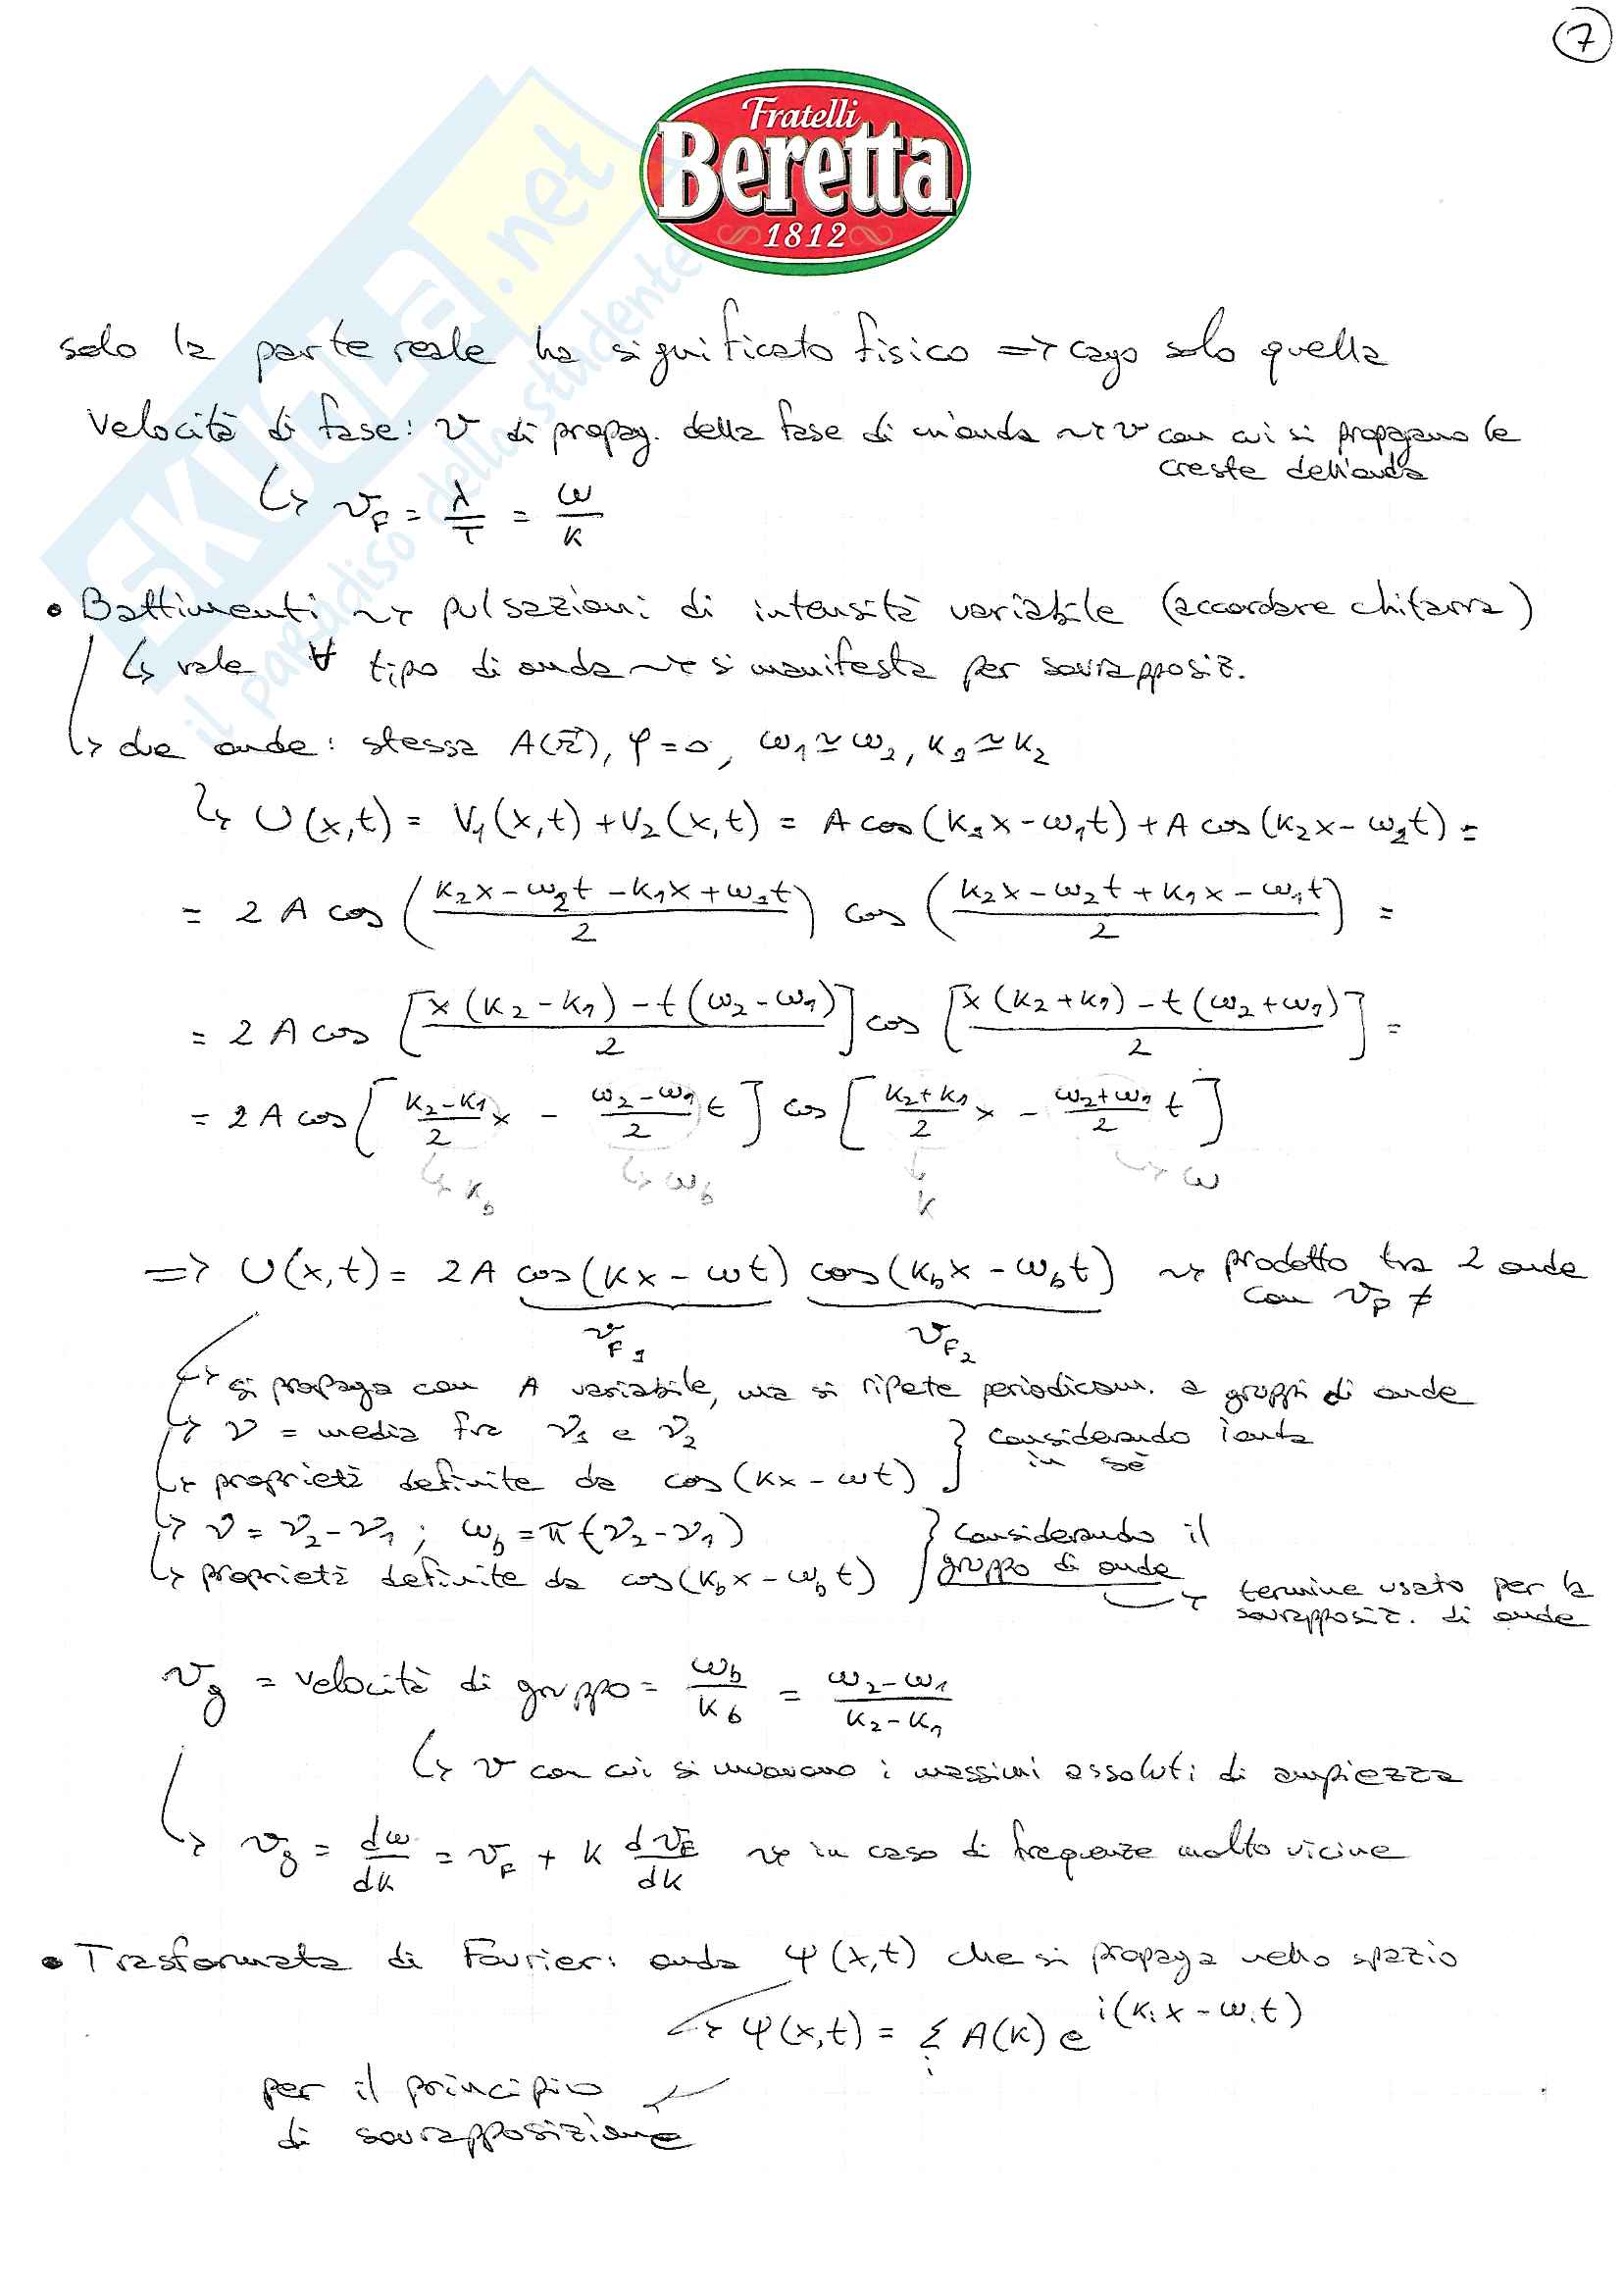 7
Fratelli
Beretta
1812
SKUOLA.net
il paradiso dello studente
solo la parte reale ha significato fisico => cago solo quella
Velocità di fase: v di propag. della fase di un'onda ~> v con cui si propagano le
creste dell'onda
↳ v_F = λ/T = ω/k
• Battimenti ~> pulsazioni di intensità variabile (accordare chitarra)
↳ vale ∀ tipo di onda ~> si manifesta per sovrapposiz.
↳ due onde: stessa A(r⃗), φ=0, ω₁≃ω₂, k₁≃k₂
↳ U(x,t) = V₁(x,t) + V₂(x,t) = A cos(k₁x-ω₁t) + A cos(k₂x-ω₂t) =
= 2 A cos ((k₂x-ω₂t-k₁x+ω₁t)/2) cos ((k₂x-ω₂t+k₁x-ω₁t)/2) =
= 2 A cos [(x(k₂-k₁)-t(ω₂-ω₁))/2] cos [(x(k₂+k₁)-t(ω₂+ω₁))/2] =
= 2 A cos [(k₂-k₁)/2 x - (ω₂-ω₁)/2 t] cos [(k₂+k₁)/2 x - (ω₂+ω₁)/2 t]
↳ k_b ↳ ω_b ↳ k ↳ ω
=> U(x,t) = 2A cos(kx-ωt) cos(k_b x-ω_b t) ~> prodotto tra 2 onde
con v_F ≠
v_F₁ v_F₂
↳ si propaga con A variabile, ma si ripete periodicam. a gruppi di onde
↳ ν = media fra ν₁ e ν₂ } considerando l'onda
in sé
↳ proprietà definite da cos(kx-ωt)
↳ ν = ν₂-ν₁ ; ω_b = π(ν₂-ν₁) } considerando il
gruppo di onde
↳ proprietà definite da cos(k_b x-ω_b t)
↳ termine usato per la
sovrapposiz. di onde
v_g = velocità di gruppo = ω_b/k_b = (ω₂-ω₁)/(k₂-k₁)
↳ v con cui si muovono i massimi assoluti di ampiezza
↳ v_g = dω/dk = v_F + k dv_F/dk ~> in caso di frequenze molto vicine
• Trasformata di Fourier: onda ψ(x,t) che si propaga nello spazio
↳ ψ(x,t) = Σᵢ A(k) e^{i(kᵢx-ωᵢt)}
per il principio
di sovrapposizione